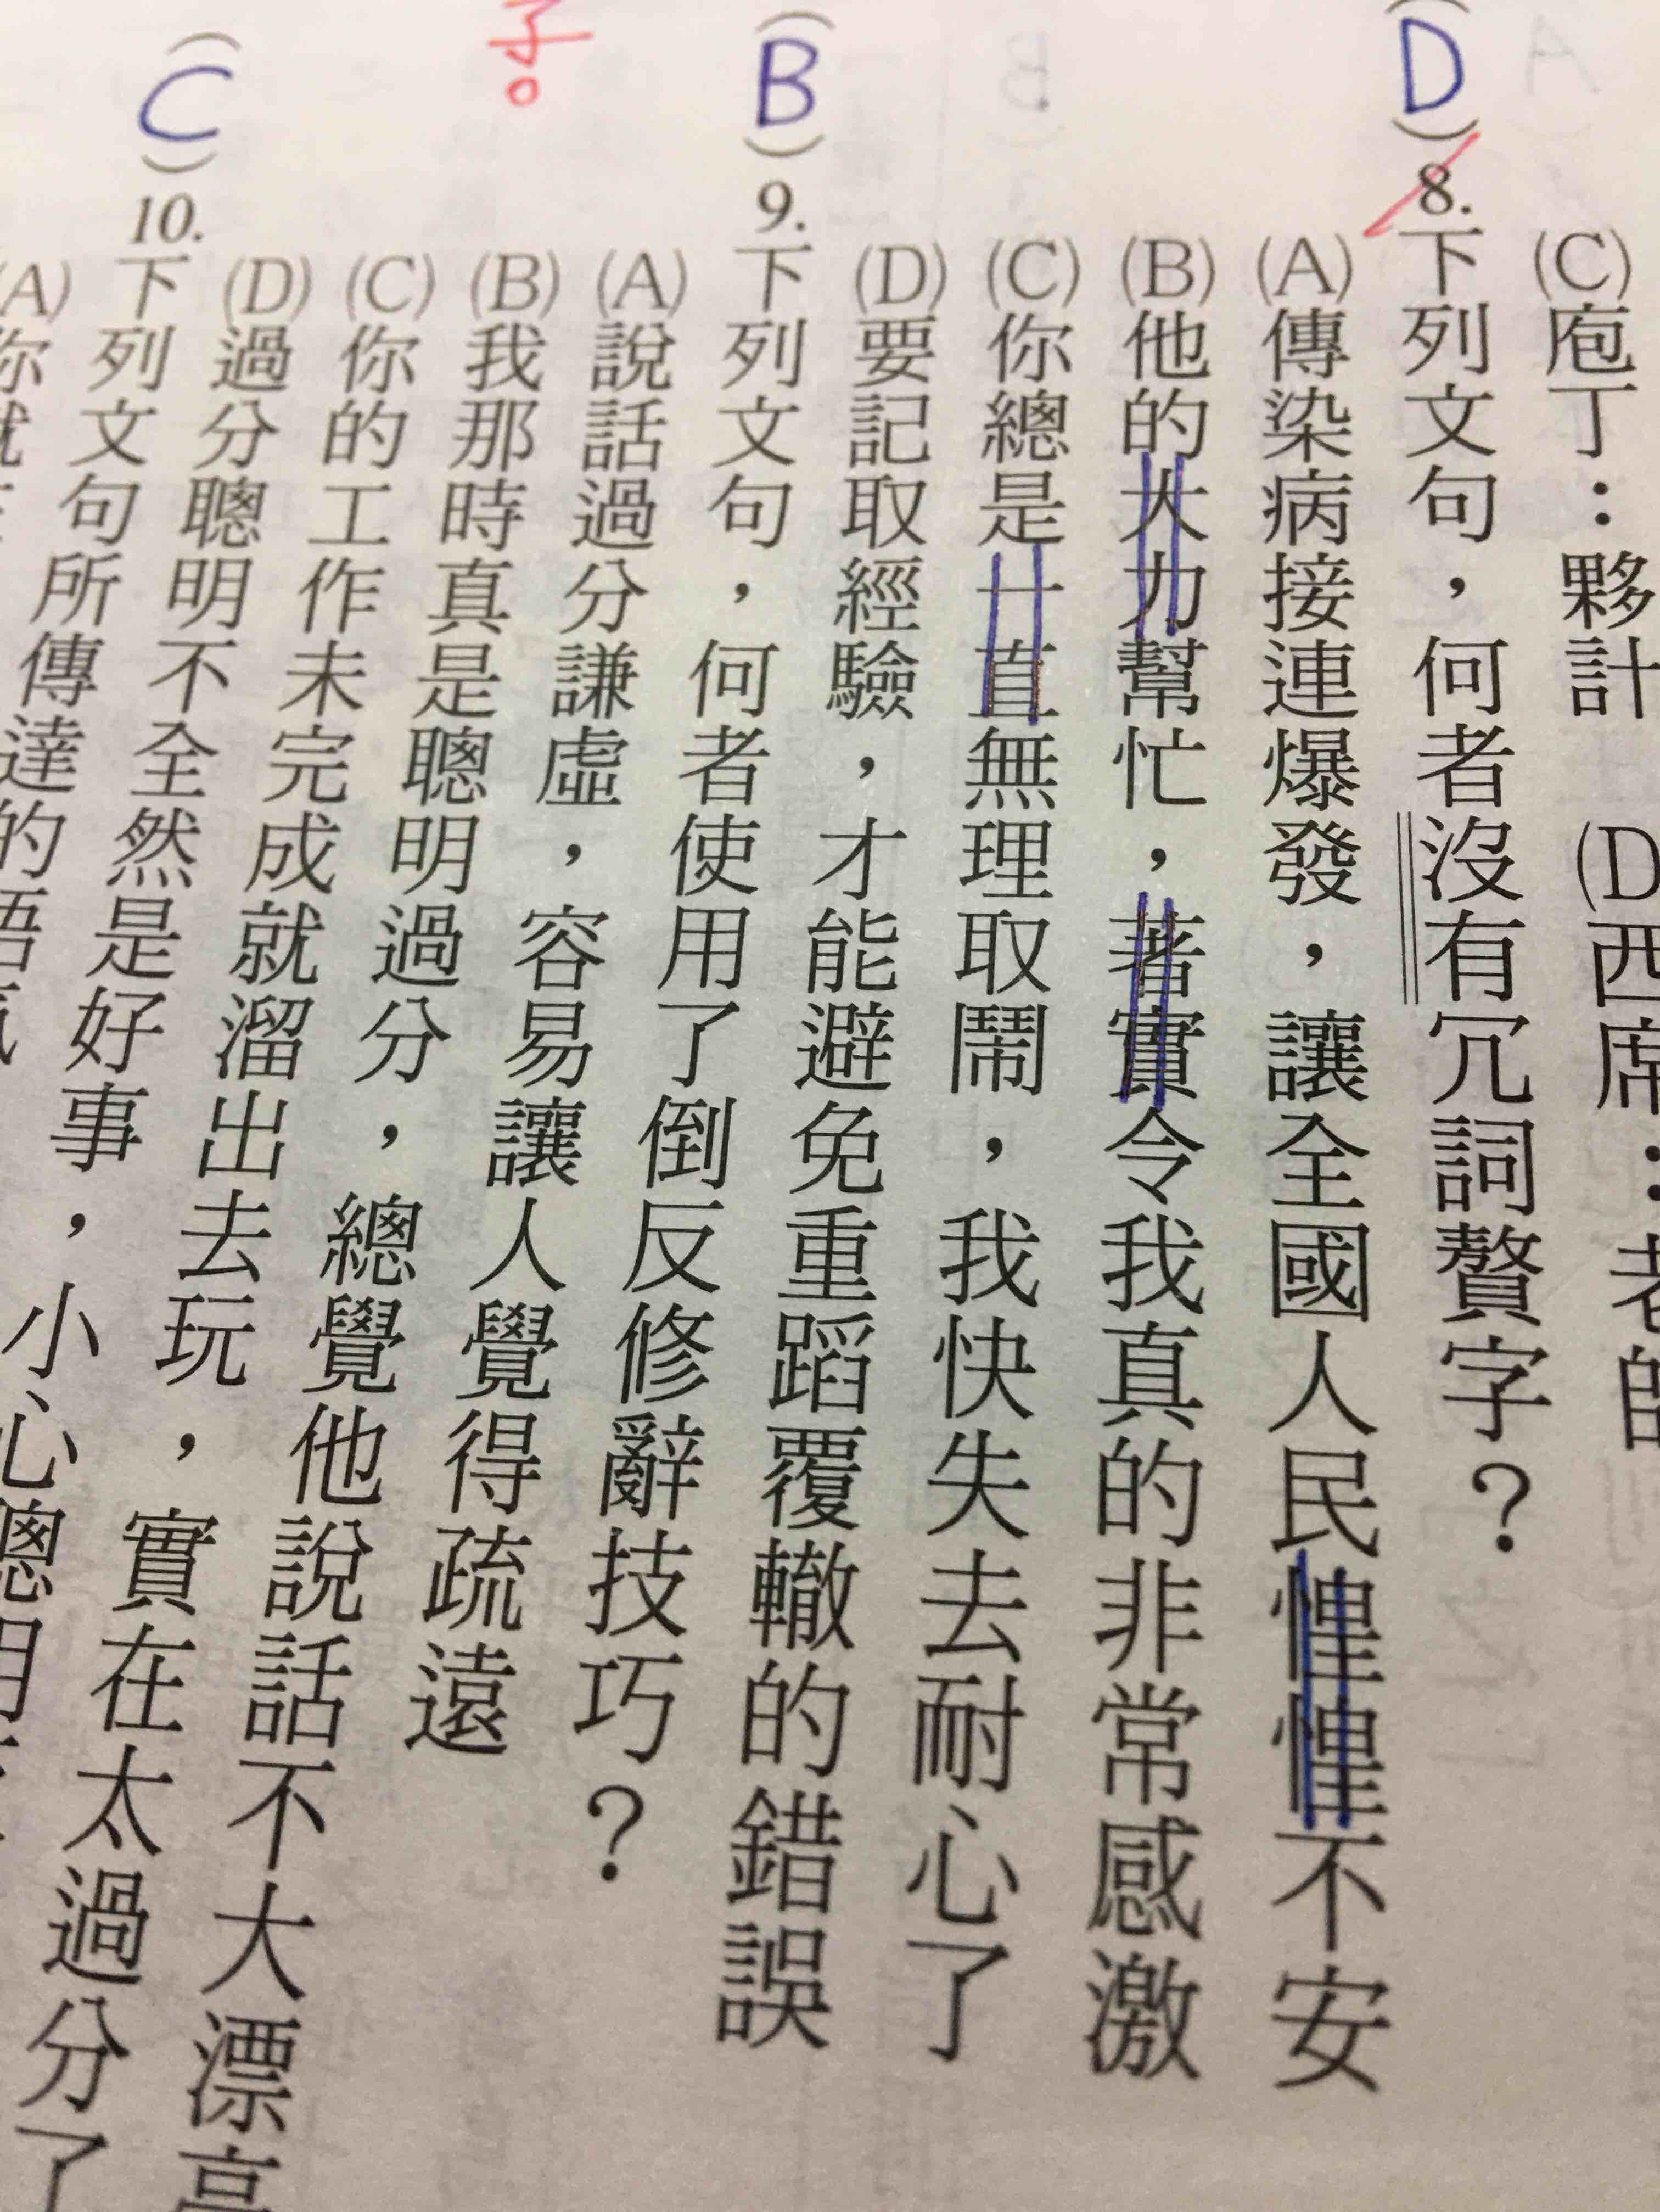 (C)庖丁：夥計　(D)西席：老師
(D)8.下列文句，何者沒有冗詞贅字？
(A)傳染病接連爆發，讓全國人民惶惶不安
(B)他的大力幫忙，著實令我真的非常感激
(C)你總是一直無理取鬧，我快失去耐心了
(D)要記取經驗，才能避免重蹈覆轍的錯誤
(B)9.下列文句，何者使用了倒反修辭技巧？
(A)說話過分謙虛，容易讓人覺得疏遠
(B)我那時真是聰明過分，總覺他說話不大漂亮
(C)你的工作未完成就溜出去玩，實在太過分了
(D)過分聰明不全然是好事，小心聰明
(C)10.下列文句所傳達的語氣
(A)你就